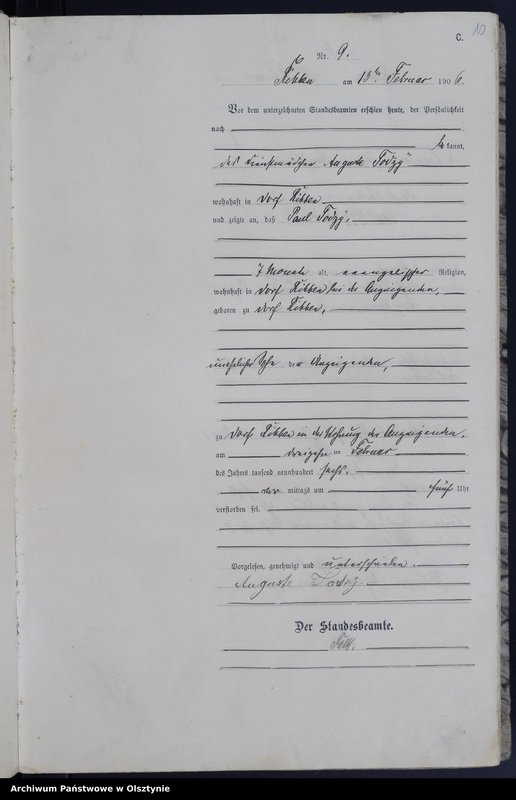 C.
10
Nr. 9.
am 13ten Februar 1906
Vor dem unterzeichneten Standesbeamten erschien heute, der Persönlichkeit
nach
bekannt,
Dienstmädchen Auguste
wohnhaft in Dorf
und zeigte an, daß Paul
7 Monate alt, evangelischer Religion,
wohnhaft in Dorf bei der Anzeigenden,
geboren zu Dorf
unehelicher Sohn der Anzeigenden,
zu Dorf in der Wohnung der Anzeigenden,
am dreizehn ten Februar
des Jahres tausend neunhundert sechs,
vor mittags um fünf Uhr
verstorben sei.
Vorgelesen, genehmigt und unterschrieben.
Auguste
Der Standesbeamte.
Archiwum Państwowe w Olsztynie